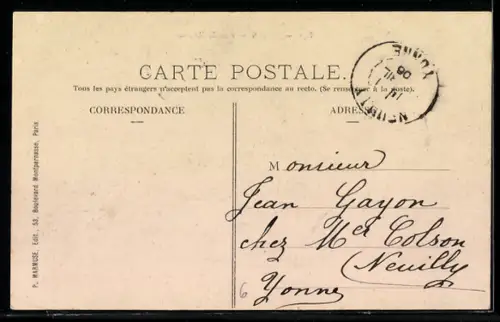 CARTE POSTALE.
Tous les pays étrangers n'acceptent pas la correspondance au recto. (Se renseigner à la poste).
CORRESPONDANCE
ADRESSE
YONNE
06
NEUILLY
Monsieur
Jean Gayon
chez Mer Colson
(Neuilly
Yonne
6
P. MARMUSE, Édit., 53, Boulevard Montparnasse, Paris.